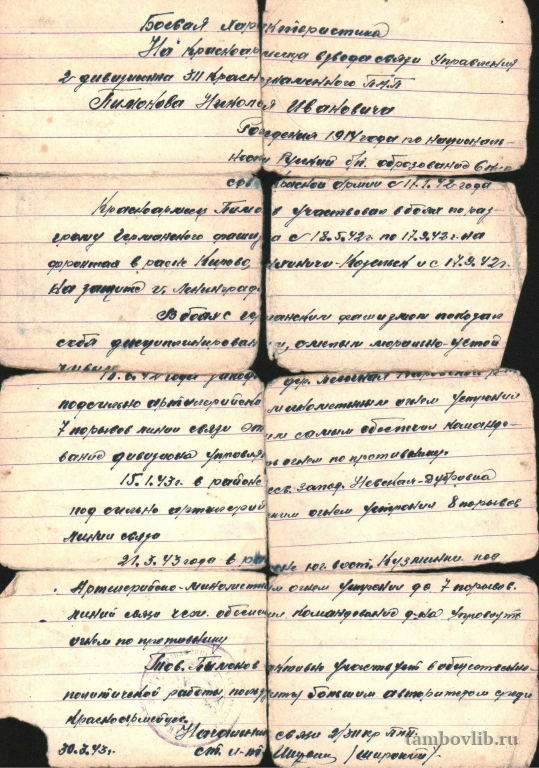 Боевая характеристика
На красноармейца взвода связи Управления
2 дивизиона 311 Краснознаменного ПАП
Пимонова Николая Ивановича
Рождения 1914 года по националь-
ности Русский б/п. образование 6
армии с 11.1.42 года
Красноармеец Пимо в участвовал в боях по раз-
грому Германского фаши с 18.5.42г. по 17.9.42г. на
фронтах в раене Кирово, Козельск и с 17.9.42г.
на защите г. Ленинград
В боях с германским фашизмом показал
себя дисциплинирован смелым морально-устой
чивым
года дер.
под сильно артилерийско минометным огнем устранил
7 порывов линии связи эт им самим обеспечил командо-
вание дивизиона управля ть огнем по противнику.
15.1.43г. в районе сев. запад. Невская-Дубровка
под сильно артилерий ским огнем устранил 8 порывов
линии связи
21.3.43 года в ра не юг. вост. Кузминки под
Артилерийско-минометным огнем устранил до 7 порывов.
линий связи чем обеспечил командование д-на управлят.
огнем по противнику
Тов. Пимонов активно участвует в общественно-
политической работы, пользуится большим авторитетом среди
Красноармейцев.
Начальник связи 2/311 кр ПАП
30.3.43г. ст. л-т (Широкий)
tambovlib.ru